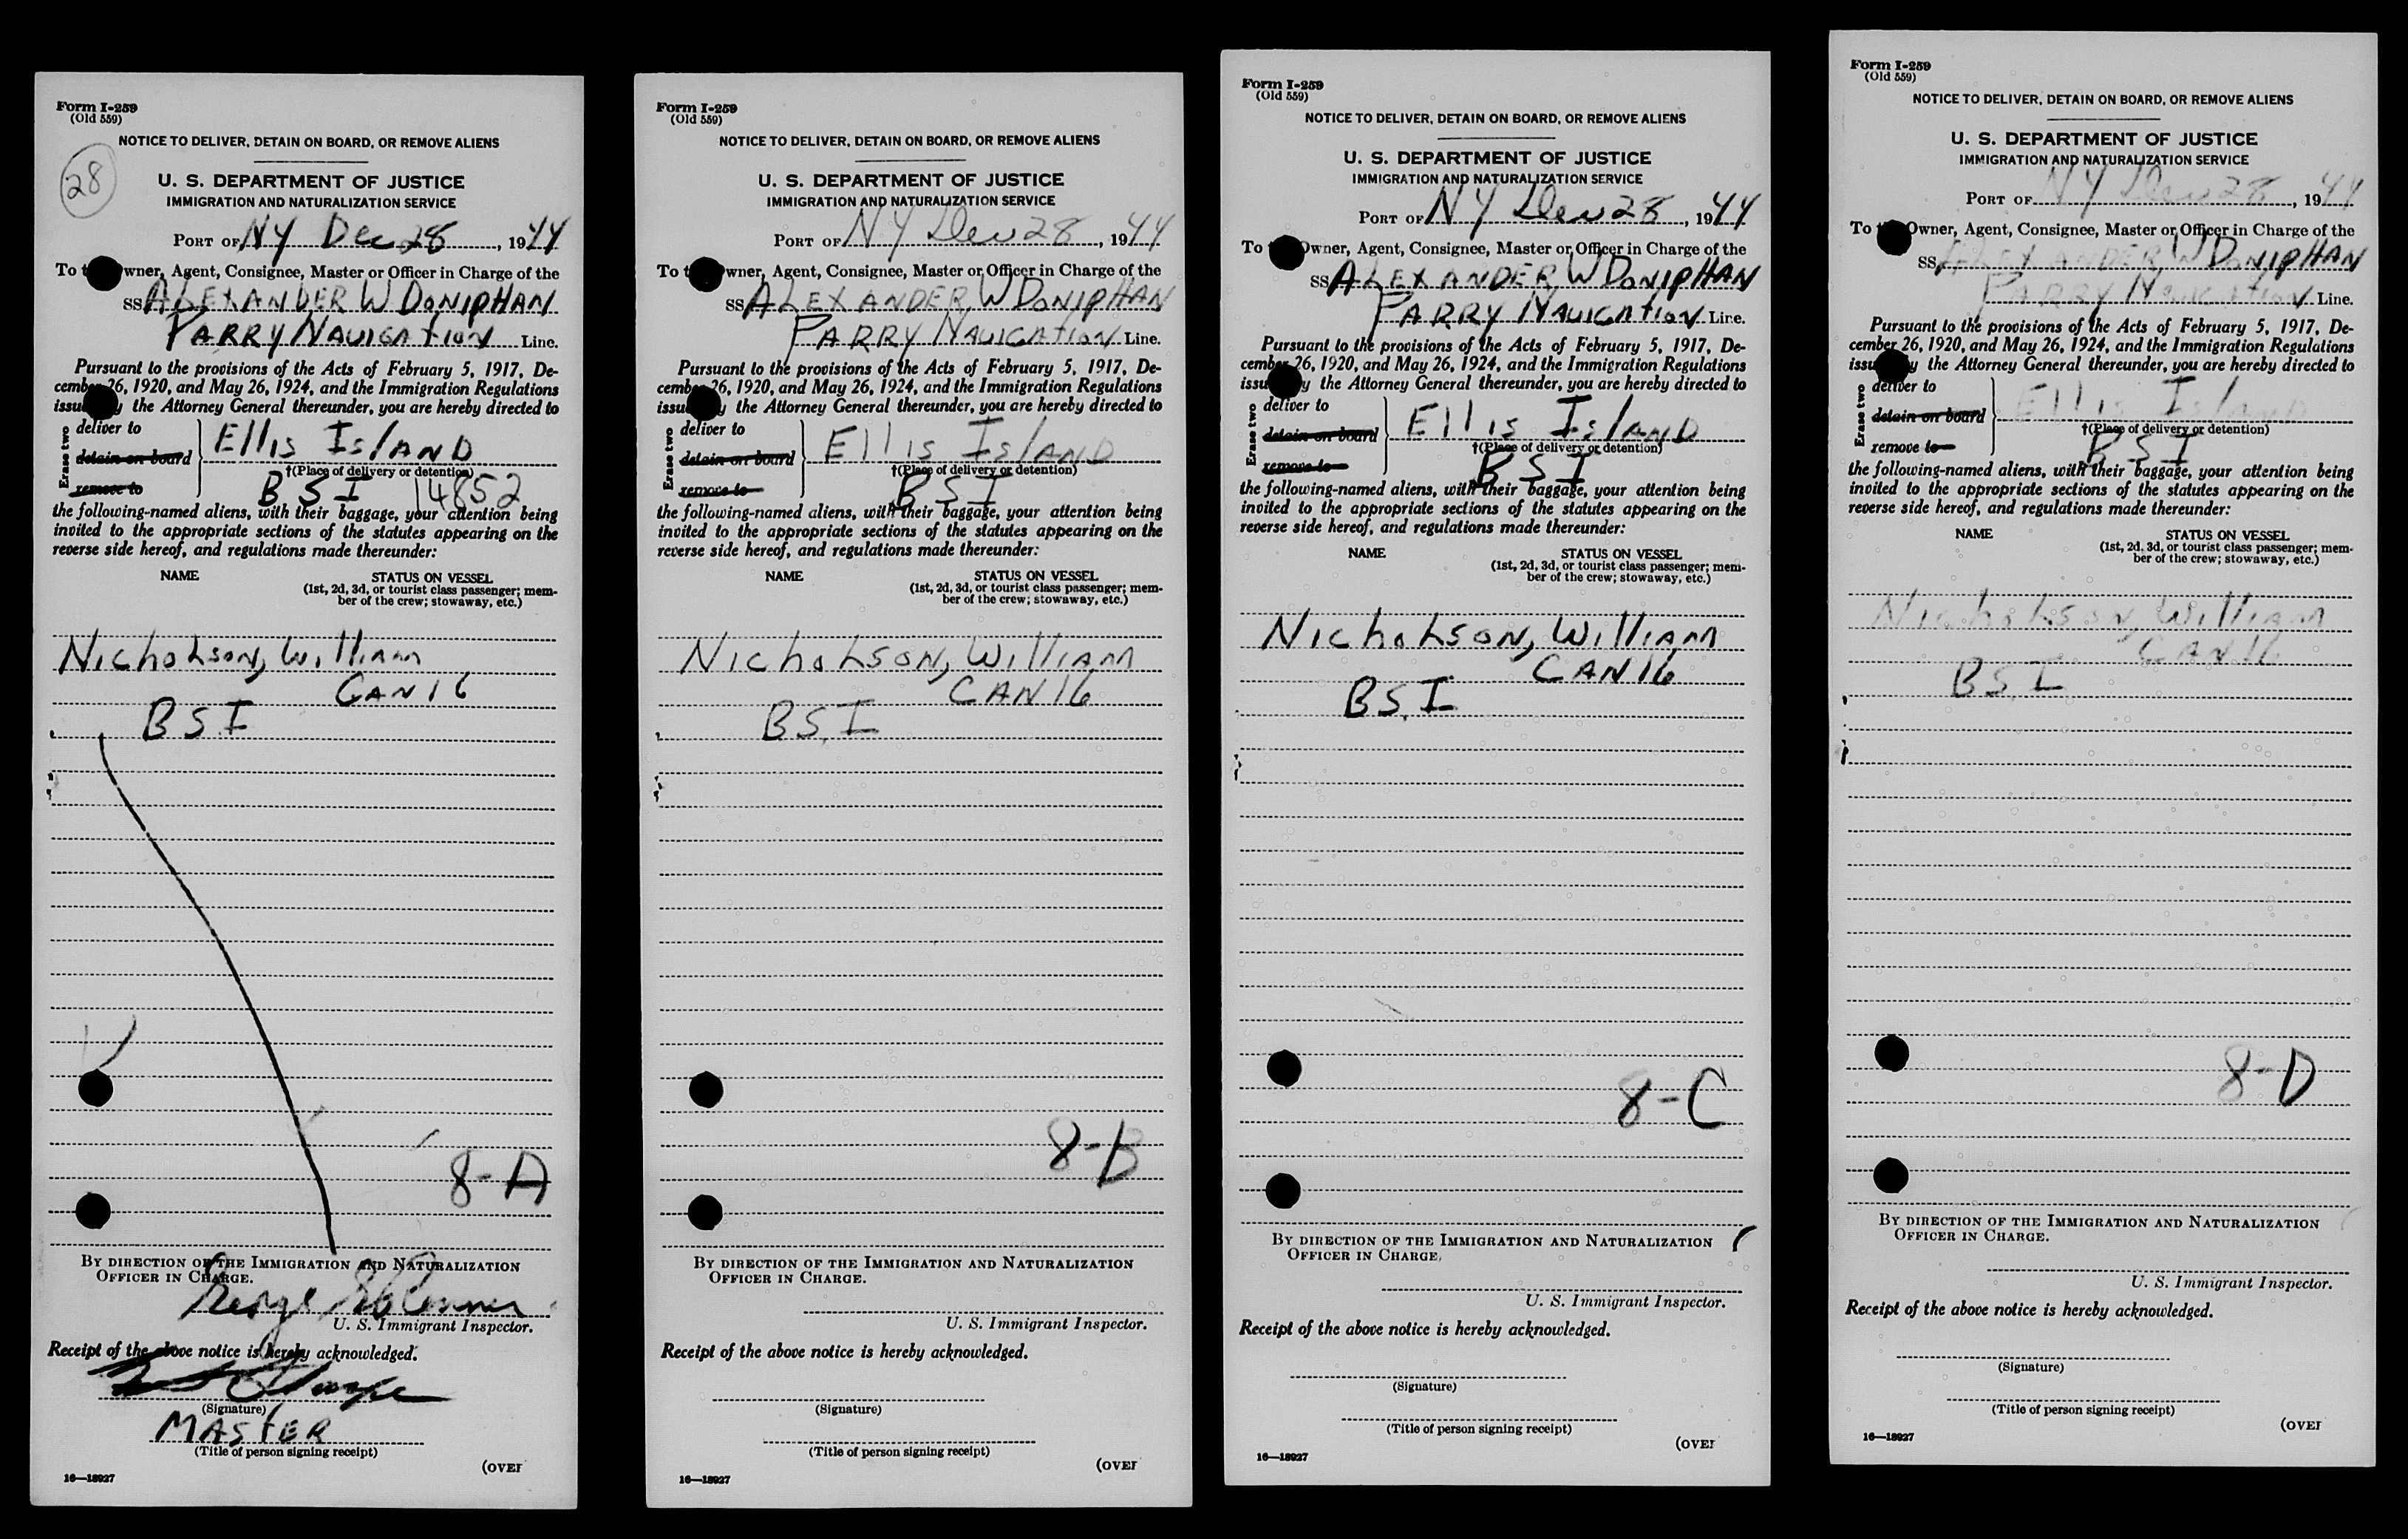 Form I-259
(Old 559)
NOTICE TO DELIVER, DETAIN ON BOARD, OR REMOVE ALIENS
28
U. S. DEPARTMENT OF JUSTICE
IMMIGRATION AND NATURALIZATION SERVICE
PORT OF NY Dec 28, 1944
To t wner, Agent, Consignee, Master or Officer in Charge of the
SS ALEXANDER W DONIPHAN
PARRY NAVIGATION Line.
Pursuant to the provisions of the Acts of February 5, 1917, De-
cember 26, 1920, and May 26, 1924, and the Immigration Regulations
issu y the Attorney General thereunder, you are hereby directed to
Erase two
deliver to
detain on board
remove to
Ellis Island
†(Place of delivery or detention)
BSI 14852
the following-named aliens, with their baggage, your attention being
invited to the appropriate sections of the statutes appearing on the
reverse side hereof, and regulations made thereunder:
NAME STATUS ON VESSEL
(1st, 2d, 3d, or tourist class passenger; mem-
ber of the crew; stowaway, etc.)
Nicholson, William
CAN 16
BSI
8-A
BY DIRECTION OF THE IMMIGRATION AND NATURALIZATION
OFFICER IN CHARGE.
George
U. S. Immigrant Inspector.
Receipt of the above notice is hereby acknowledged.
(Signature)
MASTER
(Title of person signing receipt)
(OVER
16—18927
Form I-259
(Old 559)
NOTICE TO DELIVER, DETAIN ON BOARD, OR REMOVE ALIENS
U. S. DEPARTMENT OF JUSTICE
IMMIGRATION AND NATURALIZATION SERVICE
PORT OF NY Dec 28, 1944
To t wner, Agent, Consignee, Master or Officer in Charge of the
SS ALEXANDER W DONIPHAN
PARRY NAVIGATION Line.
Pursuant to the provisions of the Acts of February 5, 1917, De-
cember 26, 1920, and May 26, 1924, and the Immigration Regulations
issu y the Attorney General thereunder, you are hereby directed to
Erase two
deliver to
detain on board
remove to
Ellis Island
†(Place of delivery or detention)
BSI
the following-named aliens, with their baggage, your attention being
invited to the appropriate sections of the statutes appearing on the
reverse side hereof, and regulations made thereunder:
NAME STATUS ON VESSEL
(1st, 2d, 3d, or tourist class passenger; mem-
ber of the crew; stowaway, etc.)
Nicholson, William
CAN 16
BSI
8-B
BY DIRECTION OF THE IMMIGRATION AND NATURALIZATION
OFFICER IN CHARGE.
U. S. Immigrant Inspector.
Receipt of the above notice is hereby acknowledged.
(Signature)
(Title of person signing receipt)
(OVER
16—18927
Form I-259
(Old 559)
NOTICE TO DELIVER, DETAIN ON BOARD, OR REMOVE ALIENS
U. S. DEPARTMENT OF JUSTICE
IMMIGRATION AND NATURALIZATION SERVICE
PORT OF NY Dec 28, 1944
To Owner, Agent, Consignee, Master or Officer in Charge of the
SS ALEXANDER W DONIPHAN
PARRY NAVIGATION Line.
Pursuant to the provisions of the Acts of February 5, 1917, De-
cember 26, 1920, and May 26, 1924, and the Immigration Regulations
issu y the Attorney General thereunder, you are hereby directed to
Erase two
deliver to
detain on board
remove to
Ellis Island
†(Place of delivery or detention)
BSI
the following-named aliens, with their baggage, your attention being
invited to the appropriate sections of the statutes appearing on the
reverse side hereof, and regulations made thereunder:
NAME STATUS ON VESSEL
(1st, 2d, 3d, or tourist class passenger; mem-
ber of the crew; stowaway, etc.)
Nicholson, William
CAN 16
BSI
8-C
BY DIRECTION OF THE IMMIGRATION AND NATURALIZATION
OFFICER IN CHARGE.
U. S. Immigrant Inspector.
Receipt of the above notice is hereby acknowledged.
(Signature)
(Title of person signing receipt)
(OVER
16—18927
Form I-259
(Old 559)
NOTICE TO DELIVER, DETAIN ON BOARD, OR REMOVE ALIENS
U. S. DEPARTMENT OF JUSTICE
IMMIGRATION AND NATURALIZATION SERVICE
PORT OF NY Dec 28, 1944
To t Owner, Agent, Consignee, Master or Officer in Charge of the
SS ALEXANDER W DONIPHAN
PARRY NAVIGATION Line.
Pursuant to the provisions of the Acts of February 5, 1917, De-
cember 26, 1920, and May 26, 1924, and the Immigration Regulations
issu y the Attorney General thereunder, you are hereby directed to
Erase two
deliver to
detain on board
remove to
Ellis Island
†(Place of delivery or detention)
BSI
the following-named aliens, with their baggage, your attention being
invited to the appropriate sections of the statutes appearing on the
reverse side hereof, and regulations made thereunder:
NAME STATUS ON VESSEL
(1st, 2d, 3d, or tourist class passenger; mem-
ber of the crew; stowaway, etc.)
Nicholson, William
CAN 16
BSI
8-D
BY DIRECTION OF THE IMMIGRATION AND NATURALIZATION
OFFICER IN CHARGE.
U. S. Immigrant Inspector.
Receipt of the above notice is hereby acknowledged.
(Signature)
(Title of person signing receipt)
(OVER
16—18927